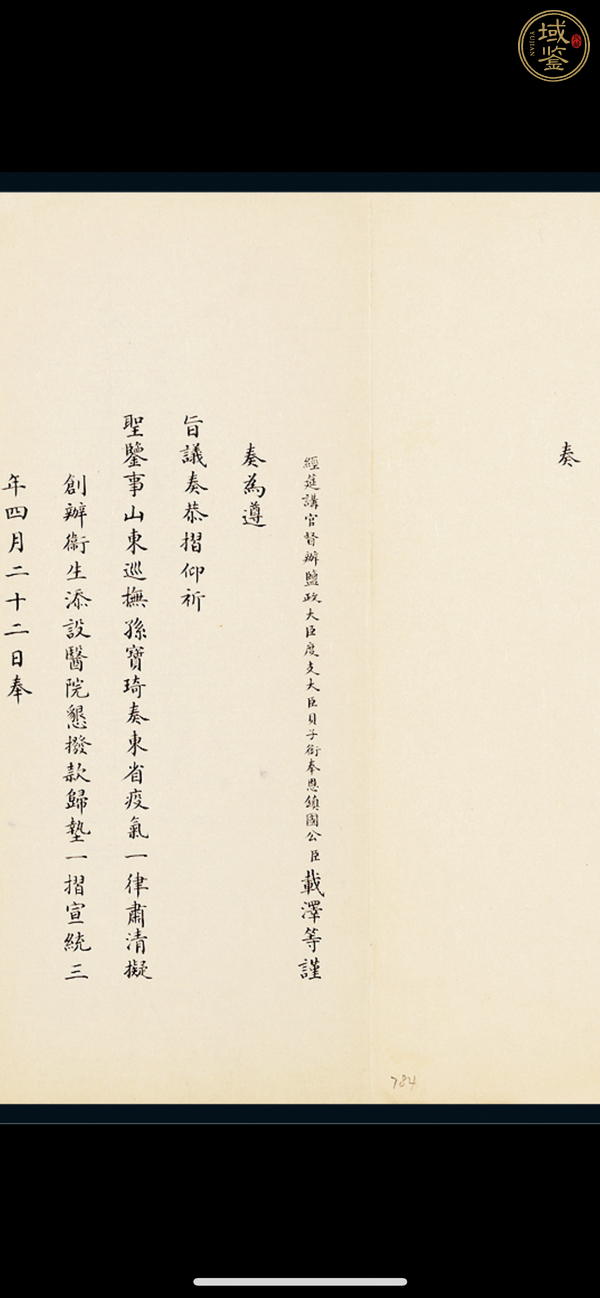 域鉴
YUJIAN
奏
經筵講官督辦鹽政大臣度支大臣貝子銜奉恩鎮國公臣載澤等謹
奏為遵
旨議奏恭摺仰祈
聖鑒事山東巡撫孫寶琦奏東省疫氣一律肅清擬
創辦衛生添設醫院懇撥款歸墊一摺宣統三
年四月二十二日奉
784